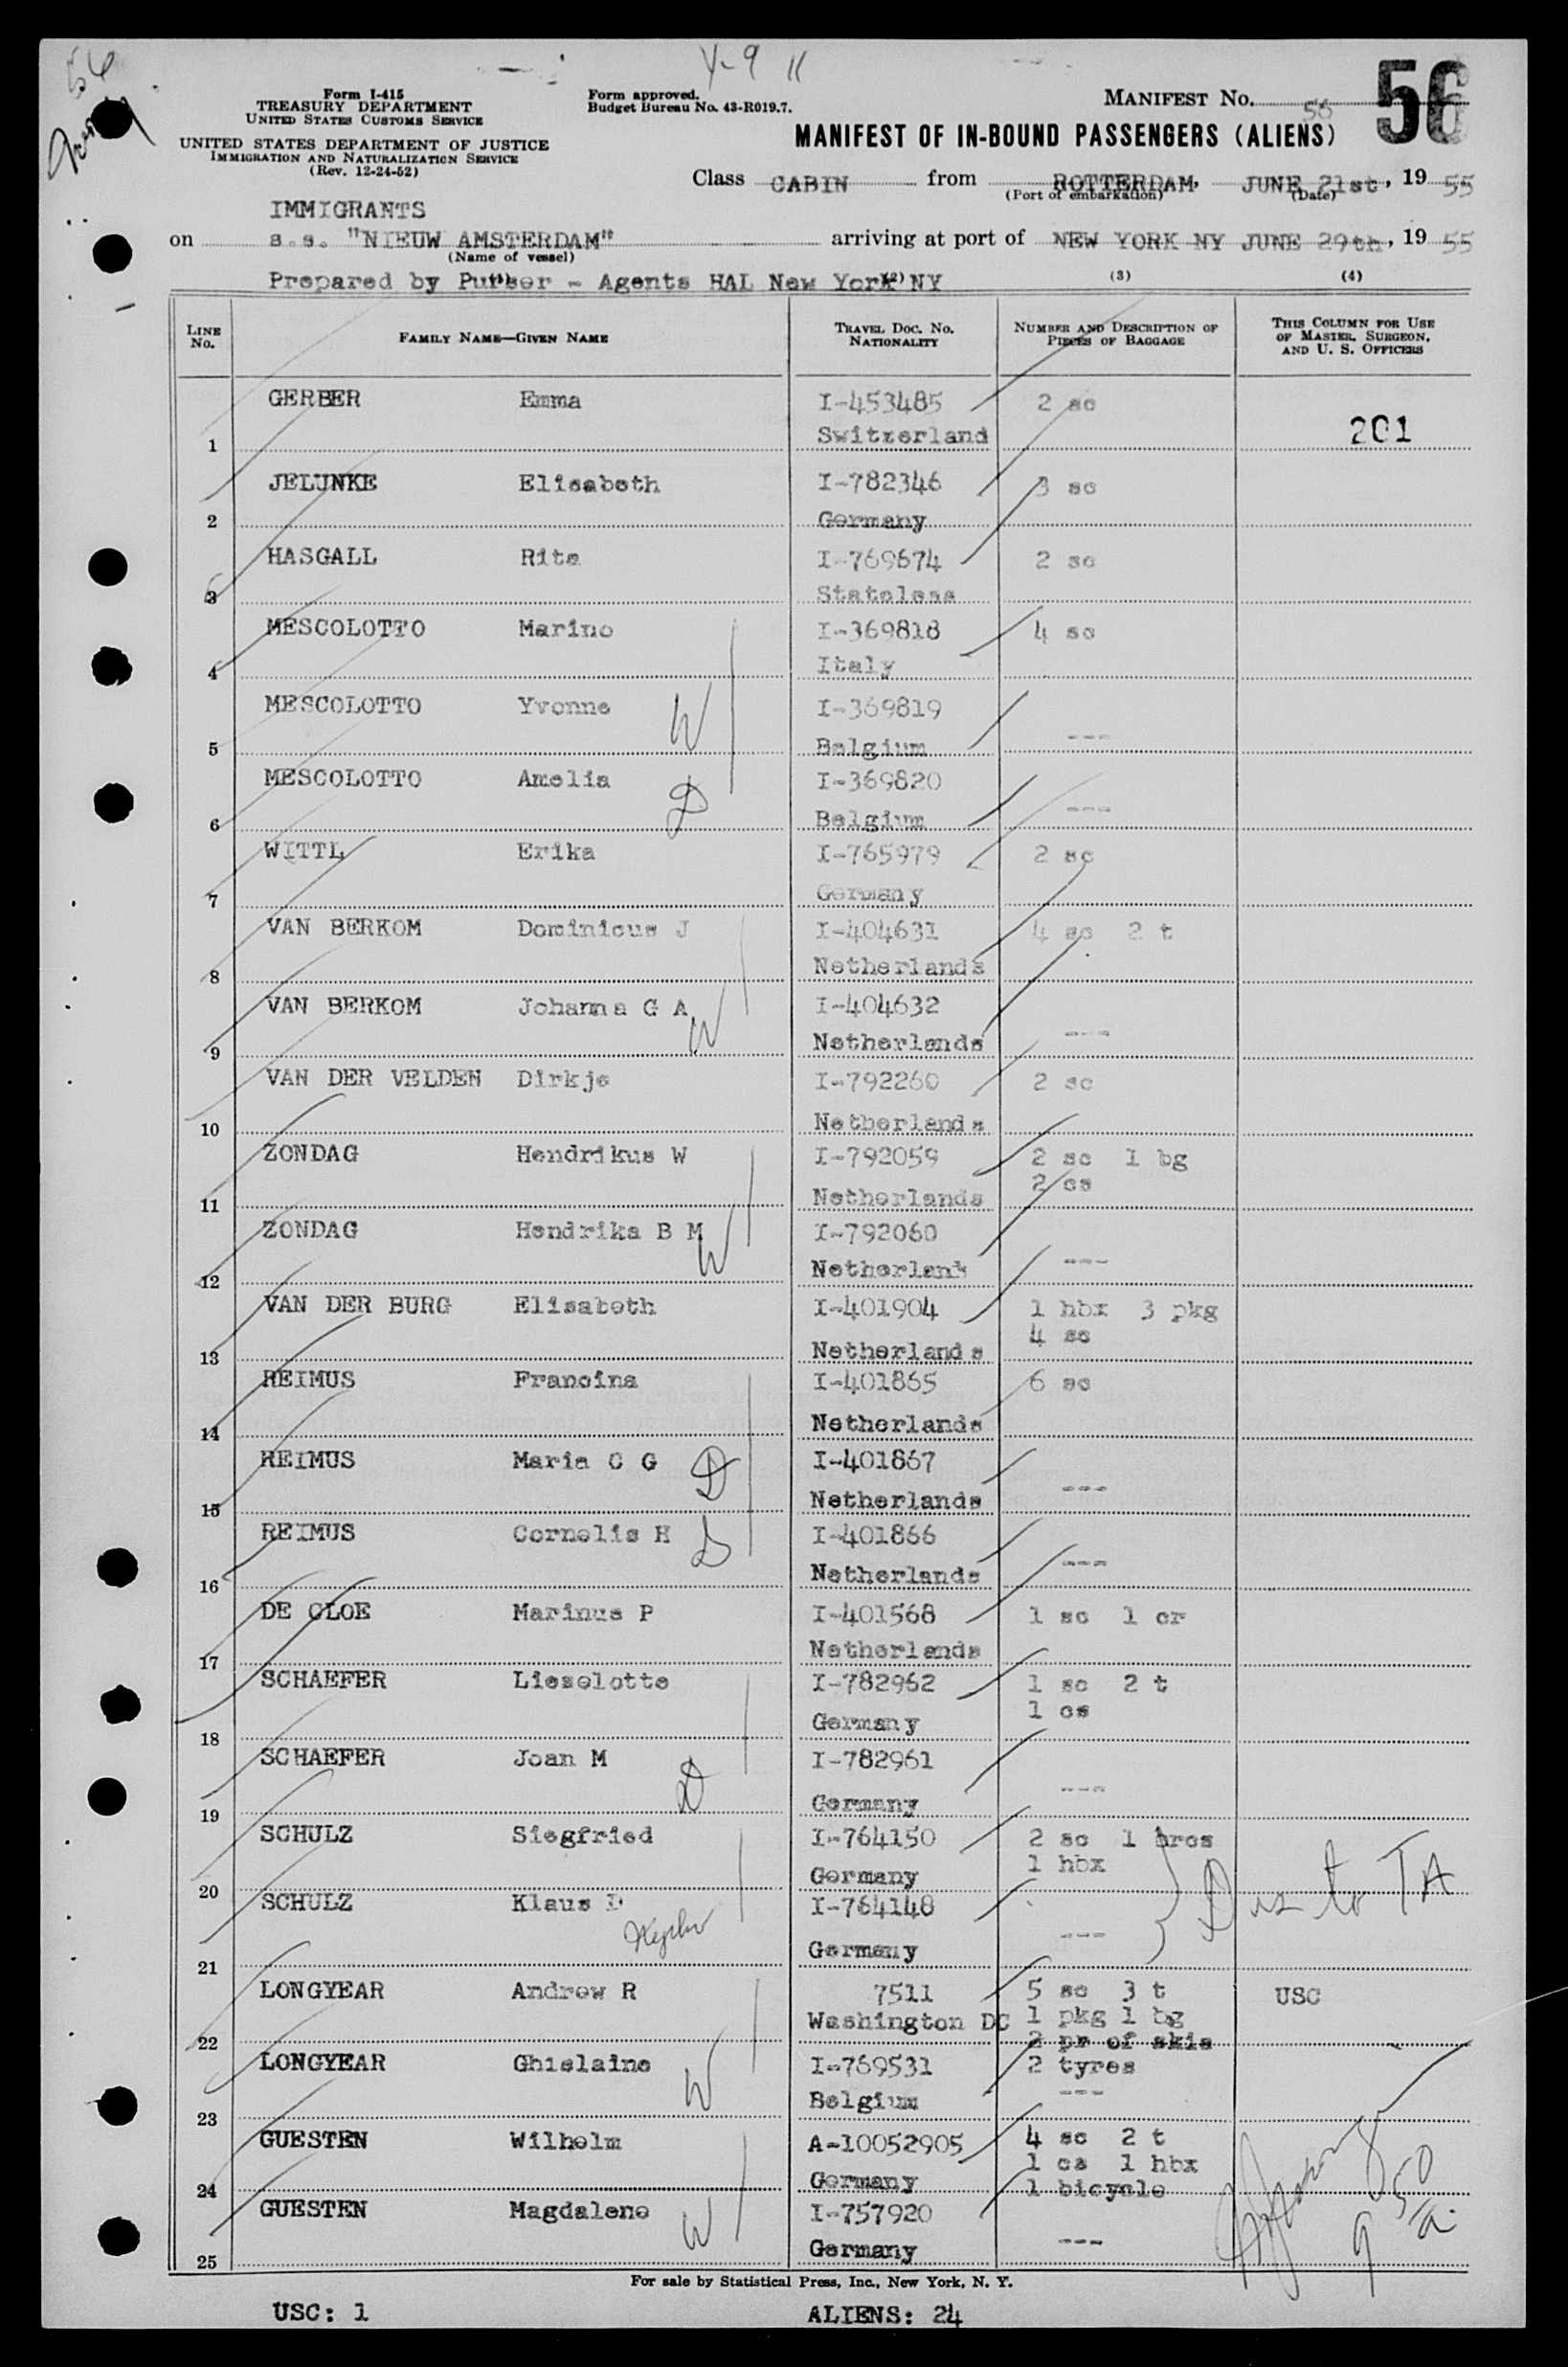 56
4-9 11
Form I-415
TREASURY DEPARTMENT
UNITED STATES CUSTOMS SERVICE
UNITED STATES DEPARTMENT OF JUSTICE
IMMIGRATION AND NATURALIZATION SERVICE
(Rev. 12-24-52)
Form approved.
Budget Bureau No. 43-R019.7.
MANIFEST No. 56 56
MANIFEST OF IN-BOUND PASSENGERS (ALIENS)
Class CABIN from ROTTERDAM, JUNE 21st, 1955
(Port of embarkation) (Date)
IMMIGRANTS
on s.s. "NIEUW AMSTERDAM" arriving at port of NEW YORK NY JUNE 29th, 1955
(Name of vessel)
Prepared by Purser - Agents HAL New York NY
(1) (2) (3) (4)
LINE No. FAMILY NAME—GIVEN NAME TRAVEL DOC. NO. NATIONALITY NUMBER AND DESCRIPTION OF PIECES OF BAGGAGE THIS COLUMN FOR USE OF MASTER, SURGEON, AND U. S. OFFICERS
GERBER Emma I-453485 2 sc
1 Switzerland 201
JELUNKE Elisabeth I-782346 3 sc
2 Germany
HASGALL Rita I-769674 2 sc
3 Stateless
MESCOLOTTO Marino I-369818 4 sc
4 Italy
MESCOLOTTO Yvonne W I-369819
5 Belgium ---
MESCOLOTTO Amelia D I-369820
6 Belgium ---
WITTL Erika I-765979 2 sc
7 Germany
VAN BERKOM Dominicus J I-404631 4 sc 2 t
8 Netherlands
VAN BERKOM Johanna G A W I-404632
9 Netherlands ---
VAN DER VELDEN Dirkje I-792260 2 sc
10 Netherlands
ZONDAG Hendrikus W I-792059 2 sc 1 bg
2 cs
11 Netherlands
ZONDAG Hendrika B M W I-792060
12 Netherlands ---
VAN DER BURG Elisabeth I-401904 1 hbx 3 pkg
4 sc
13 Netherlands
REIMUS Francina I-401865 6 sc
14 Netherlands
REIMUS Maria C G D I-401867
15 Netherlands ---
REIMUS Cornelis H S I-401866
16 Netherlands ---
DE CLOE Marinus P I-401568 1 sc 1 cr
17 Netherlands
SCHAEFER Lieselotte I-782962 1 sc 2 t
1 cs
18 Germany
SCHAEFER Joan M D I-782961
19 Germany ---
SCHULZ Siegfried I-764150 2 sc 1 brcs
1 hbx
20 Germany Dis to TA
SCHULZ Klaus D I-764148
21 Nephw Germany ---
LONGYEAR Andrew R 7511 5 sc 3 t USC
Washington DC 1 pkg 1 bg
22 2 pr of skis
LONGYEAR Ghislaine W I-769531 2 tyres
23 Belgium ---
GUESTEN Wilhelm A-10052905 4 sc 2 t
1 cs 1 hbx
24 Germany 1 bicycle
GUESTEN Magdalene W I-757920 9 50/a.
25 Germany ---
For sale by Statistical Press, Inc., New York, N. Y.
USC: 1 ALIENS: 24